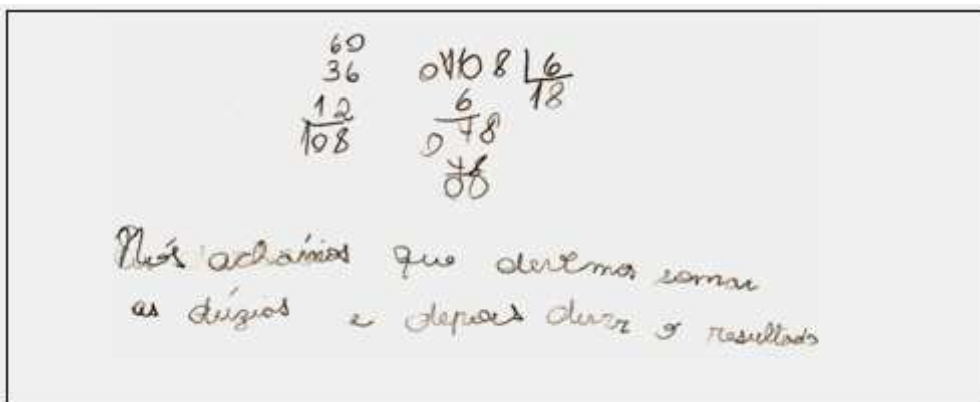 60
36
12
108
0108 6
6 18
0 48
48
00
Nós achamos que devemos somar
as dúzias e depois o resultado